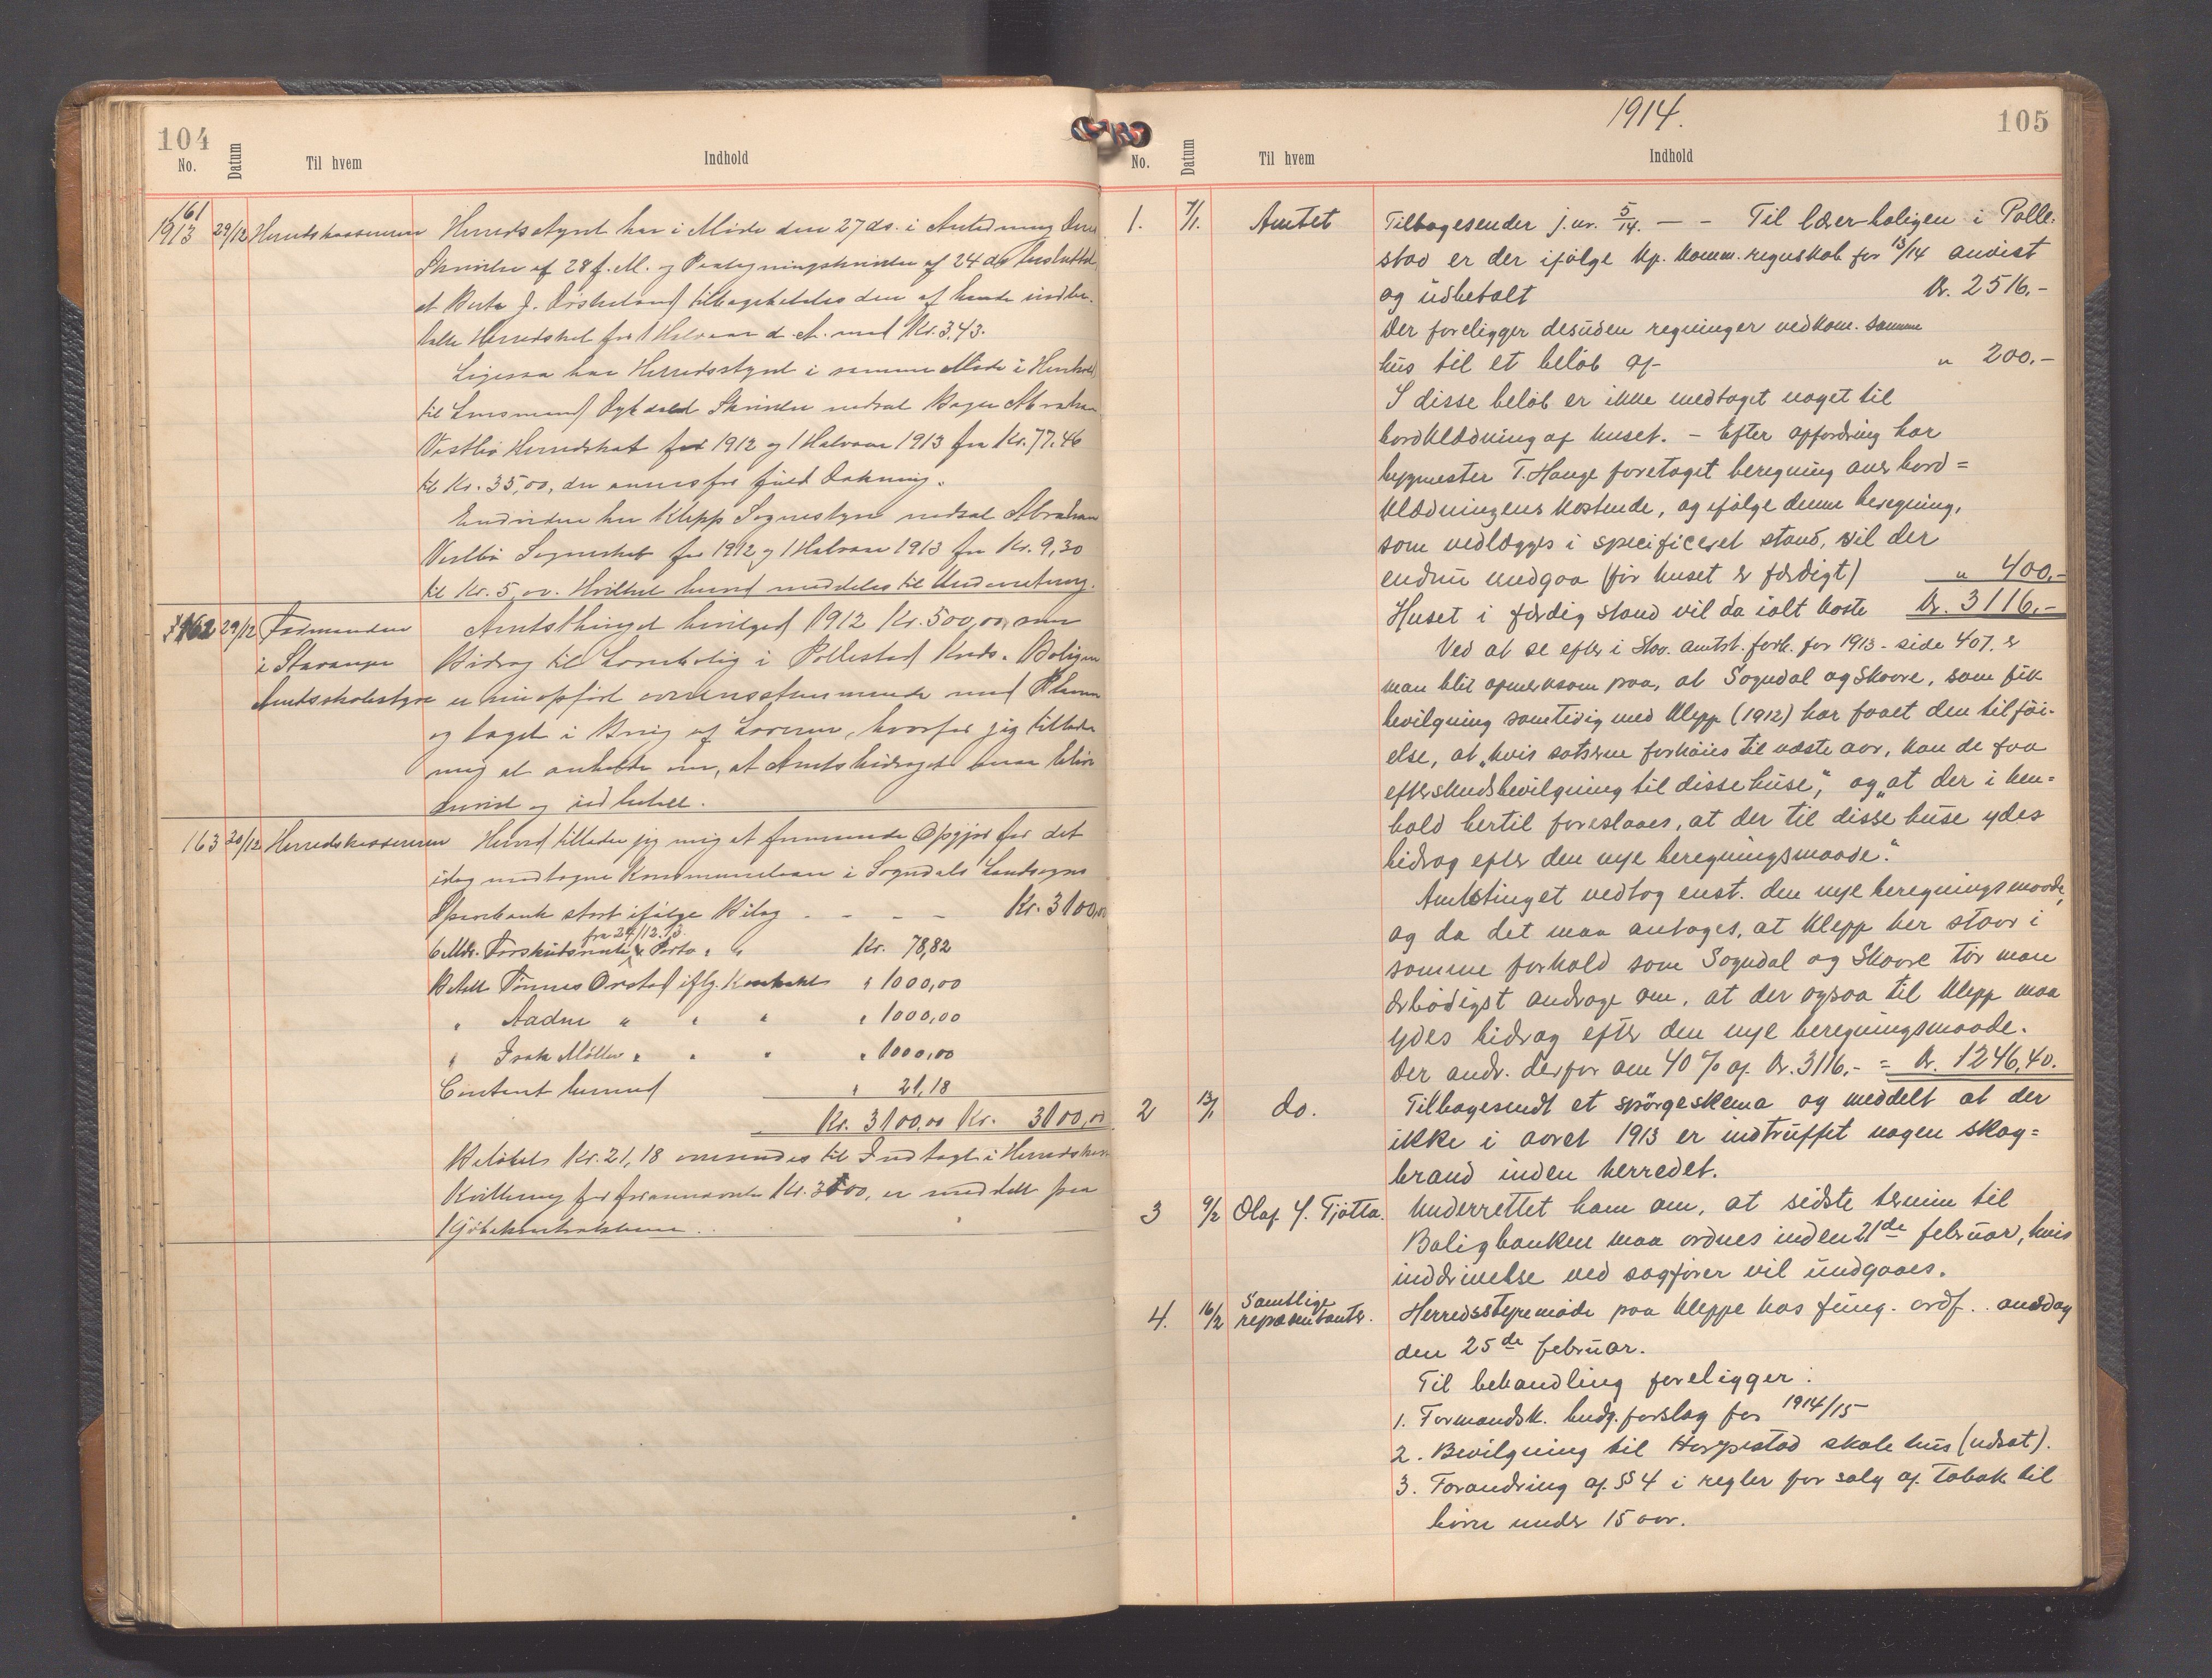 104
No.
Datum
Til hvem
Indhold
161
1913 29/12 Herredskassereren Herredsstyret har i Møde den 27 ds. i Anledning Deres
Skrivelse af 28 f. M. og Paategningsskrivelse af 24 ds besluttet,
at Berte J. Orstenland tilbagebetales den af hende indbe-
talte Herredskat for 1 Halvaar d. A. med Kr. 3,43.
Ligesaa har Herredsstyret i samme Møde i Henhold
til Lensmand Skrivelse nedsat Abraham
Vestbø Herredskat for 1912 og 1 Halvaar 1913 fra Kr. 77,46
til Kr. 35,00, der ansees for fuld Dækning.
Endvidere har Klepp Sognestyre nedsat Abraham
Vestbø Sogneskat for 1912 og 1 Halvaar 1913 fra Kr. 9,30
til Kr. 5,00. Hvilket herved meddeles til Underretning.
162 29/12 Formanden Amtsthinget bevilged 1912 Kr. 500,00 som
i Stavanger Bidrag til Lærerbolig i Pollestad Kreds. Boligen
Amtsskolestyre er nu opført overensstemmende med Planen
og taget i Brug af Læreren, hvorfor jeg tillader
mig at anholde om, at Amtsbidraget maa blive
anvist og udbetalt.
163 30/12 Herredskassereren Herved tillader jeg mig at fremsende Opgjør for det
idag modtagne Kommunelaan i Sogndals Landsogns
Sparebank stort ifølge Bilag - - - Kr. 3100,00
fra 29/12.13.
6 Mdr. Forskudsrente & Porto " " Kr. 78,82
Betalt Tønnes Orstad iflg. Kontrakt " 1000,00
" Aadne " " " " 1000,00
" Isak Møller " " " " 1000,00
Contant herved " 21,18
Kr. 3100,00 Kr. 3100,00
Beløbet Kr. 21,18 oversendes til Indtægt i Herredskassen
Kvittering for forannævnte Kr. 3000, er meddelt paa
Kjøbekontrakterne.
1914.
105
No.
Datum
Til hvem
Indhold
1. 7/1. Amtet Tilbagesender j.nr. 5/14. — - Til lærerboligen i Polle-
stad er der ifølge Kp. komm. regnskab for 13/14 anvist
og udbetalt Kr. 2516.-
Der foreligger desuden regninger vedkom. samme
hus til et beløb af " 200.-
I disse beløb er ikke medtaget noget til
bordklædning af huset. - Efter opfordring har
bygmester T. Hauge foretaget beregning over bord=
klædningens kostende, og ifølge denne beregning,
som vedlægges i specificeret stand, vil der
endnu medgaa (før huset er færdigt) " 400,-
Huset i færdig stand vil da ialt koste Kr. 3116,-
Ved at se efter i Stav. amtst. forh. for 1913 - side 407. er
man blit opmerksom paa, at Sogndal og Skaare, som fik
bevilgning samtidig med Klepp (1912) har faaet den tilføi-
else, at „hvis satserne forhøies til næste aar, kan de faa
efterskudsbevilgning til disse huse", og „at der i hen=
hold hertil foreslaaes, at der til disse huse ydes
bidrag efter den nye beregningsmaade."
Amtstinget vedtog enst. den nye beregningsmaade,
og da det maa antages, at Klepp her staar i
samme forhold som Sogndal og Skaare tør man
ærbødigst andrage om, at der ogsaa til Klepp maa
ydes bidrag efter den nye beregningsmaade.
Der andr. derfor om 40 % af Kr. 3116,- = Kr. 1246,40.
2 13/1 do. Tilbagesendt et spørgeskema og meddelt at der
ikke i aaret 1913 er indtruffet nogen skog=
brand inden herredet.
3 9/2 Olaf Y. Tjøtta. Underrettet ham om, at sidste termin til
Boligbanken maa ordnes inden 21de februar, hvis
inddrivelse ved sagfører vil undgaaes.
4. 16/2 Samtlige repræsentanter. Herredsstyremøde paa Kleppe hos fung. ordf. onsdag
den 25de februar.
Til behandling foreligger:
1. Formandsk. budg. forslag for 1914/15
2. Bevilgning til Horpestad skolehus (udsat).
3. Forandring af §§ 4 i regler for salg af tobak til
børn under 15 aar.